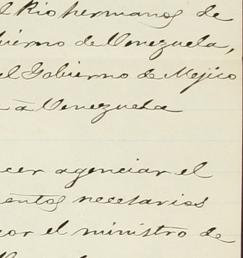 el Rio hermanos de
bierno de Venezuela,
el Gobierno de Mejico
a Venezuela
cer agenciar el
entos necetarios
por el ministro de